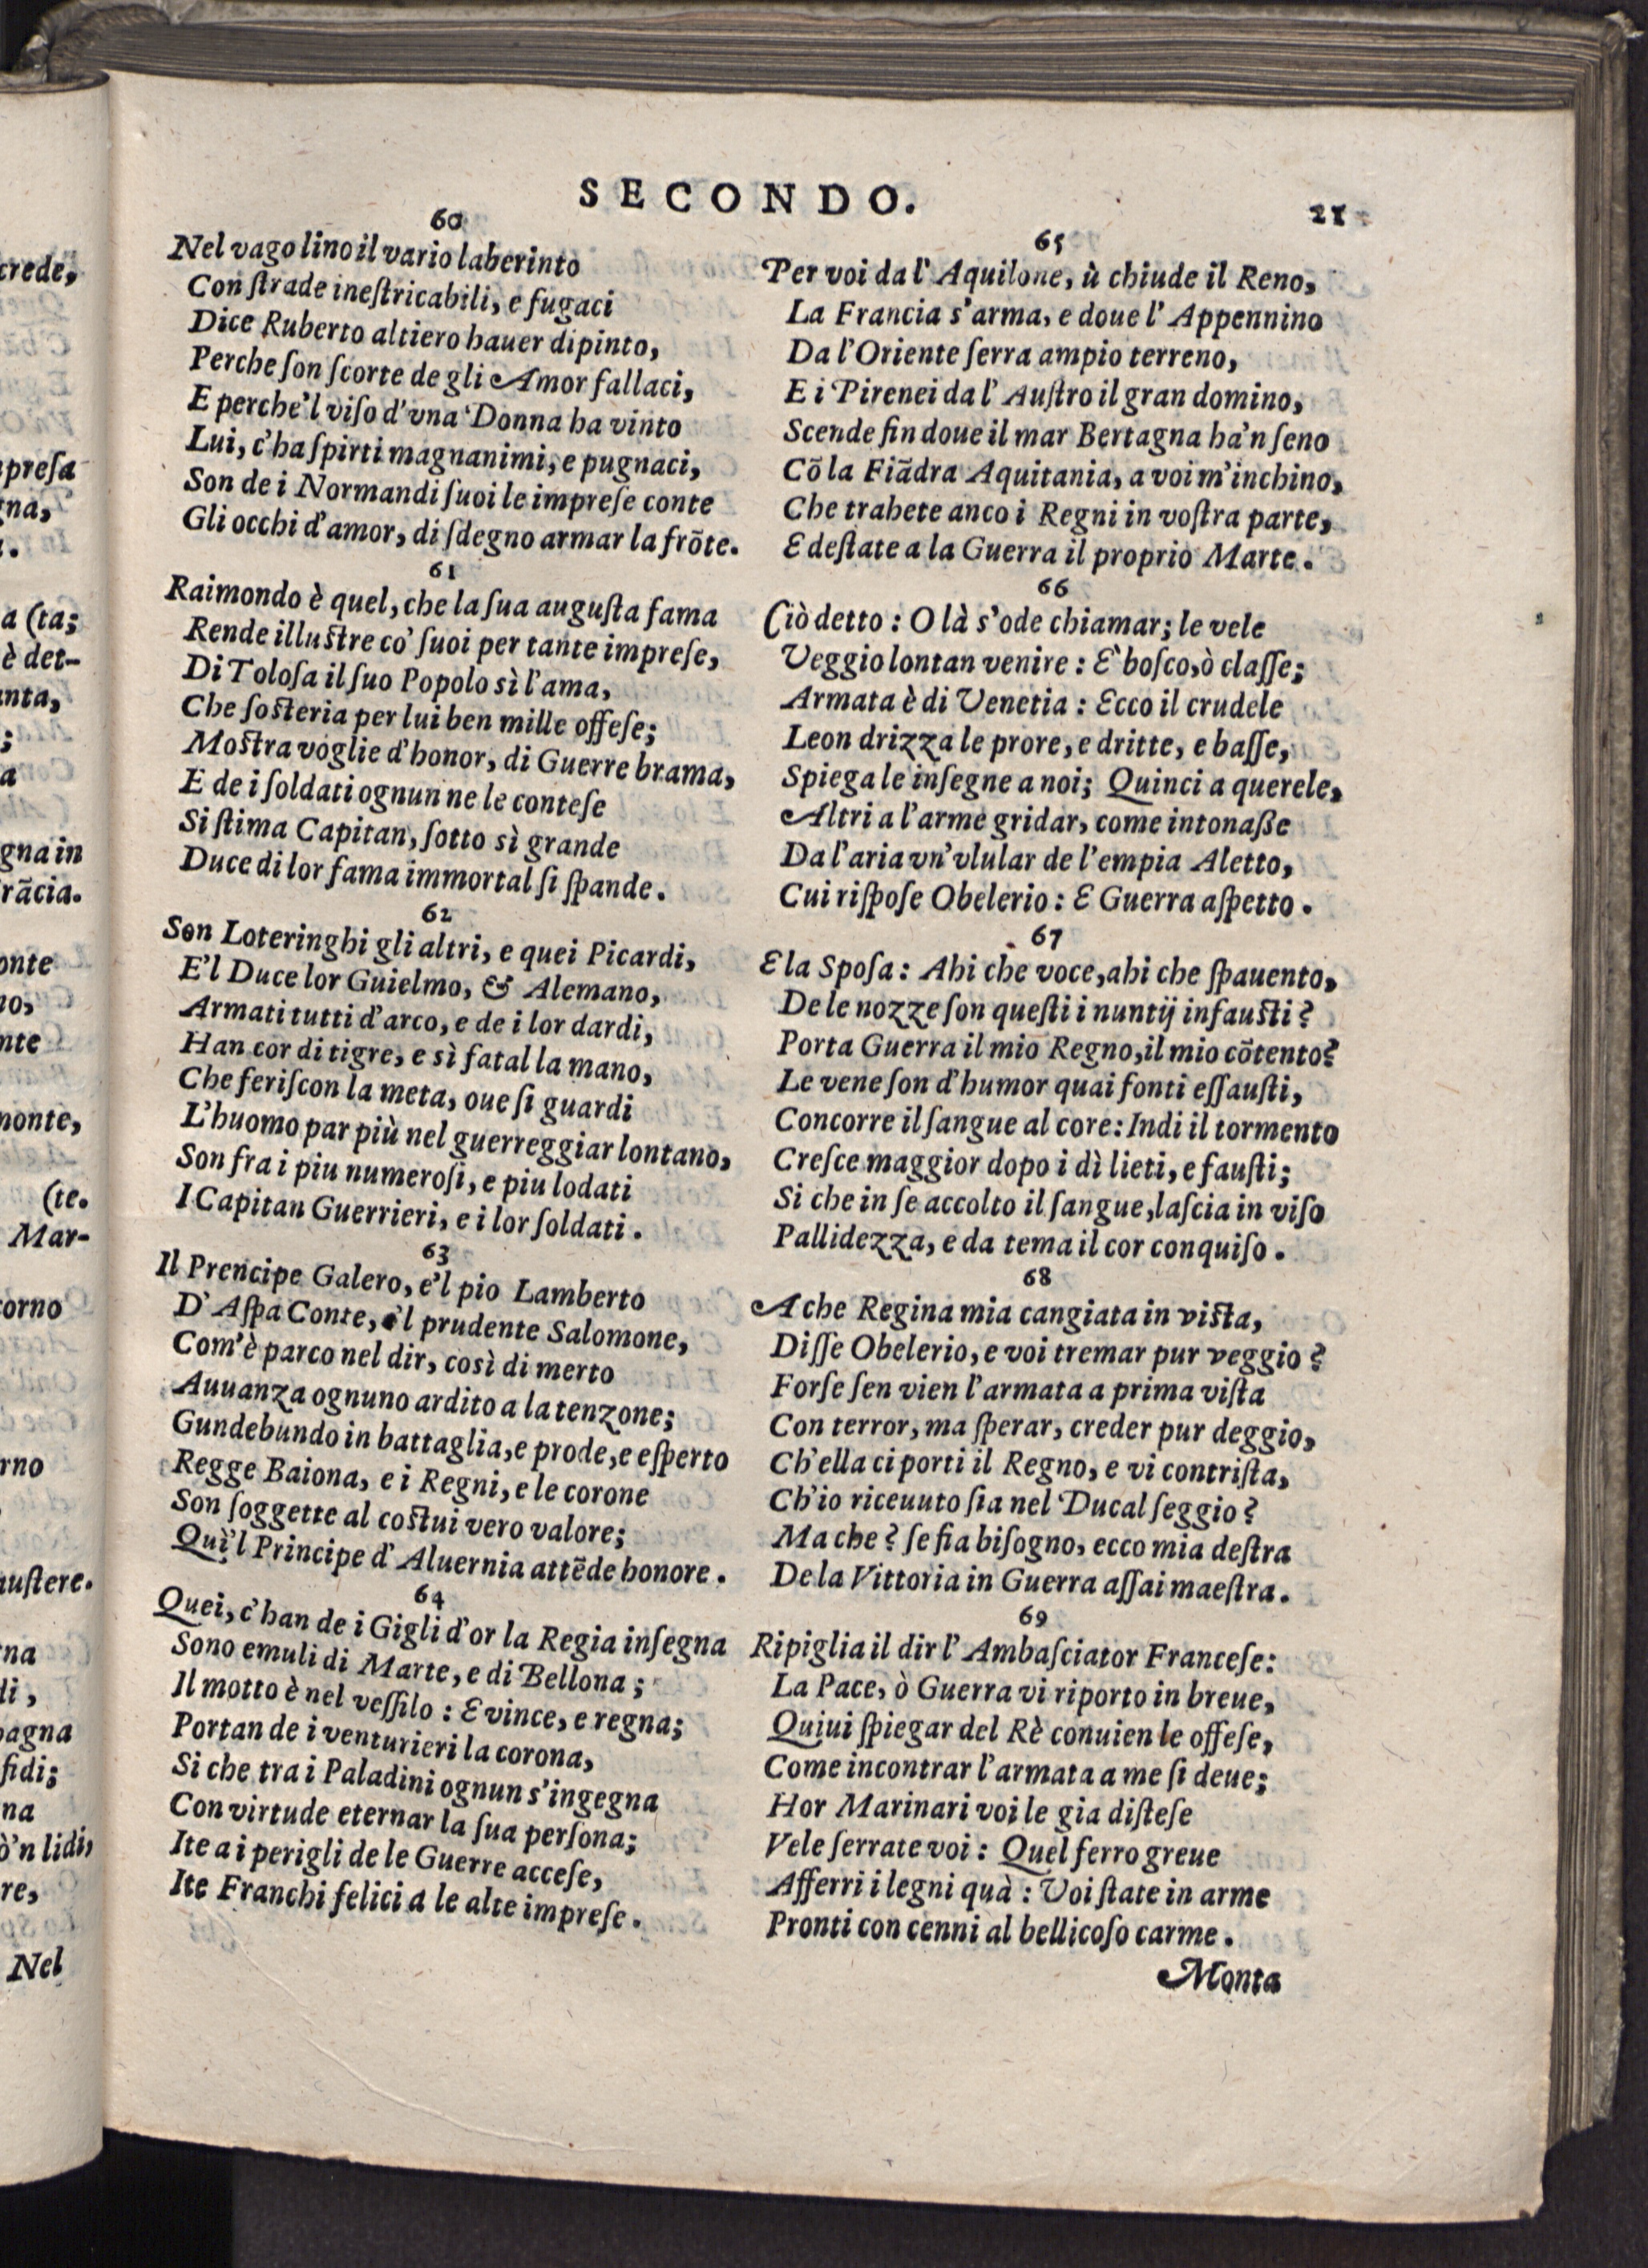 SECONDO.
21
60
Nel vago lino il vario laberinto
Con ſtrade ineſtricabili, e fugaci
Dice Ruberto altiero hauer dipinto,
Perche ſon ſcorte de gli Amor fallaci,
E perche'l viſo d'vna Donna ha vinto
Lui, c'ha ſpirti magnanimi, e pugnaci,
Son de i Normandi ſuoi le impreſe conte
Gli occhi d'amor, di ſdegno armar la frōte.
61
Raimondo è quel, che la ſua auguſta fama
Rende illuſtre co' ſuoi per tante impreſe,
Di Toloſa il ſuo Popolo sì l'ama,
Che ſoſteria per lui ben mille offeſe;
Moſtra voglie d'honor, di Guerre brama,
E de i ſoldati ognun ne le conteſe
Si ſtima Capitan, ſotto sì grande
Duce di lor fama immortal ſi ſpande.
62
Son Loteringhi gli altri, e quei Picardi,
E'l Duce lor Guielmo, & Alemano,
Armati tutti d'arco, e de i lor dardi,
Han cor di tigre, e sì fatal la mano,
Che feriſcon la meta, oue ſi guardi
L'huomo par più nel guerreggiar lontano,
Son fra i piu numeroſi, e piu lodati
I Capitan Guerrieri, e i lor ſoldati.
63
Il Prencipe Galero, e'l pio Lamberto
D'Aſpa Conte, e'l prudente Salomone,
Com'è parco nel dir, così di merto
Auuanza ognuno ardito a la tenzone;
Gundebundo in battaglia, e prode, e eſperto
Regge Baiona, e i Regni, e le corone
Son ſoggette al coſtui vero valore;
Quì'l Principe d'Aluernia attēde honore.
64
Quei, c'han de i Gigli d'or la Regia inſegna
Sono emuli di Marte, e di Bellona;
Il motto è nel veſſilo: E vince, e regna;
Portan de i venturieri la corona,
Si che tra i Paladini ognun s'ingegna
Con virtude eternar la ſua perſona;
Ite a i perigli de le Guerre acceſe,
Ite Franchi felici a le alte impreſe.
65
Per voi da l'Aquilone, ù chiude il Reno,
La Francia s'arma, e doue l'Appennino
Da l'Oriente ſerra ampio terreno,
E i Pirenei da l'Auſtro il gran domino,
Scende fin doue il mar Bertagna ha'n ſeno
Cō la Fiādra Aquitania, a voi m'inchino,
Che trahete anco i Regni in voſtra parte,
E deſtate a la Guerra il proprio Marte.
66
Ciò detto: O là s'ode chiamar; le vele
Veggio lontan venire: E' boſco, ò claſſe;
Armata è di Venetia: Ecco il crudele
Leon drizza le prore, e dritte, e baſſe,
Spiega le inſegne a noi; Quinci a querele,
Altri a l'arme gridar, come intonaße
Da l'aria vn'vlular de l'empia Aletto,
Cui riſpoſe Obelerio: E Guerra aſpetto.
67
E la Spoſa: Ahi che voce, ahi che ſpauento,
De le nozze ſon queſti i nuntij infauſti?
Porta Guerra il mio Regno, il mio cōtento?
Le vene ſon d'humor quai fonti eſſauſti,
Concorre il ſangue al core: Indi il tormento
Creſce maggior dopo i dì lieti, e fauſti;
Si che in ſe accolto il ſangue, laſcia in viſo
Pallidezza, e da tema il cor conquiſo.
68
A che Regina mia cangiata in viſta,
Diſſe Obelerio, e voi tremar pur veggio?
Forſe ſen vien l'armata a prima viſta
Con terror, ma ſperar, creder pur deggio,
Ch'ella ci porti il Regno, e vi contriſta,
Ch'io riceuuto ſia nel Ducal ſeggio?
Ma che? ſe fia biſogno, ecco mia deſtra
De la Vittoria in Guerra aſſai maeſtra.
69
Ripiglia il dir l'Ambaſciator Franceſe:
La Pace, ò Guerra vi riporto in breue,
Quiui ſpiegar del Rè conuien le offeſe,
Come incontrar l'armata a me ſi deue;
Hor Marinari voi le gia diſteſe
Vele ſerrate voi: Quel ferro greue
Afferri i legni quà: Voi ſtate in arme
Pronti con cenni al bellicoſo carme.
Monta